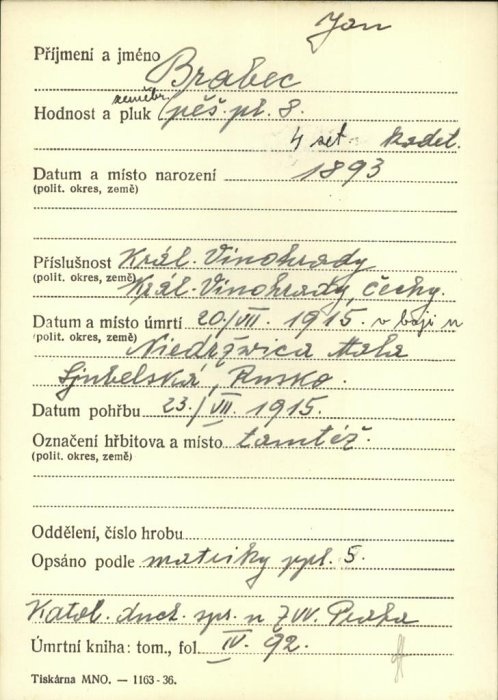 Jan
Příjmení a jméno Brabec
zeměbr.
Hodnost a pluk pěš. pl. 8.
4 set. kadet.
Datum a místo narození 1893
(polit. okres, země)
Příslušnost Král. Vinohrady
(polit. okres, země) Král. Vinohrady, Čechy.
Datum a místo úmrtí 20/VII. 1915. v boji u
(polit. okres, země) Niedrzwica Mala
Ljubelská, Rusko.
Datum pohřbu 23./VII. 1915.
Označení hřbitova a místo tamtéž.
(polit. okres, země)
Oddělení, číslo hrobu
Opsáno podle matriky ppl. 5.
Katol. duch. spr. n ZVV. Praha
Úmrtní kniha: tom., fol. IV. 92.
Tiskárna MNO. — 1163-36.